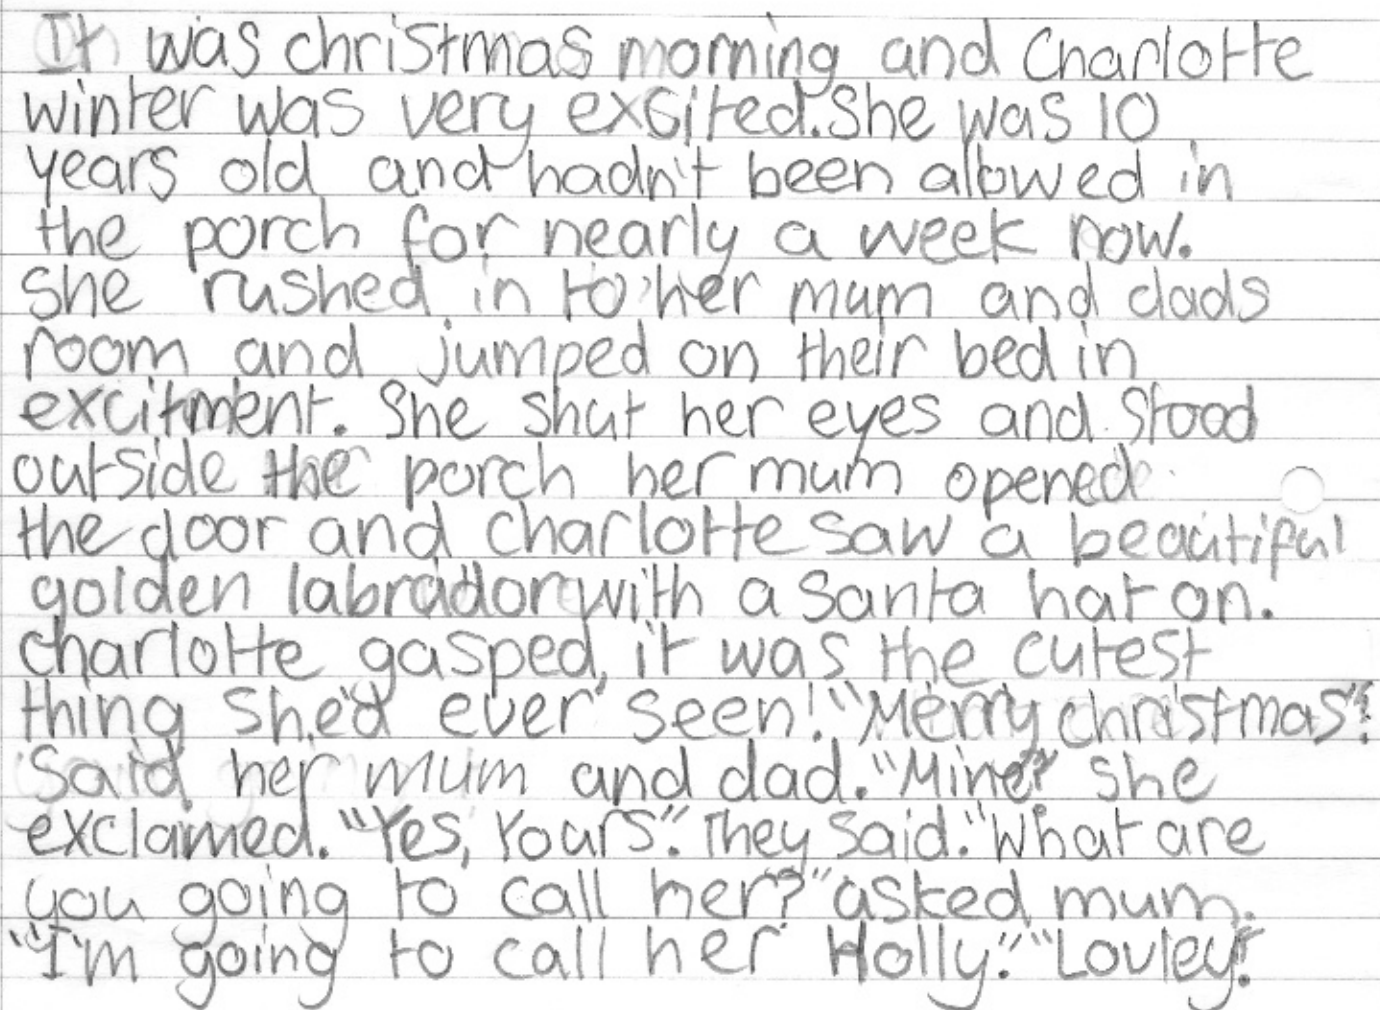 It was christmas morning and Charlotte
winter was very excited. She was 10
years old and hadn't been allowed in
the porch for nearly a week now.
She rushed in to her mum and dads
room and jumped on their bed in
excitment. She shut her eyes and stood
outside the porch her mum opened
the door and charlotte saw a beautiful
golden labrador with a santa hat on.
charlotte gasped, it was the cutest
thing she'd ever seen! "Merry christmas"!
Said her mum and dad. "Mine?" she
exclaimed. "Yes, Yours". They said. "What are
you going to call her?" asked mum.
"I'm going to call her Holly." "Lovley!"